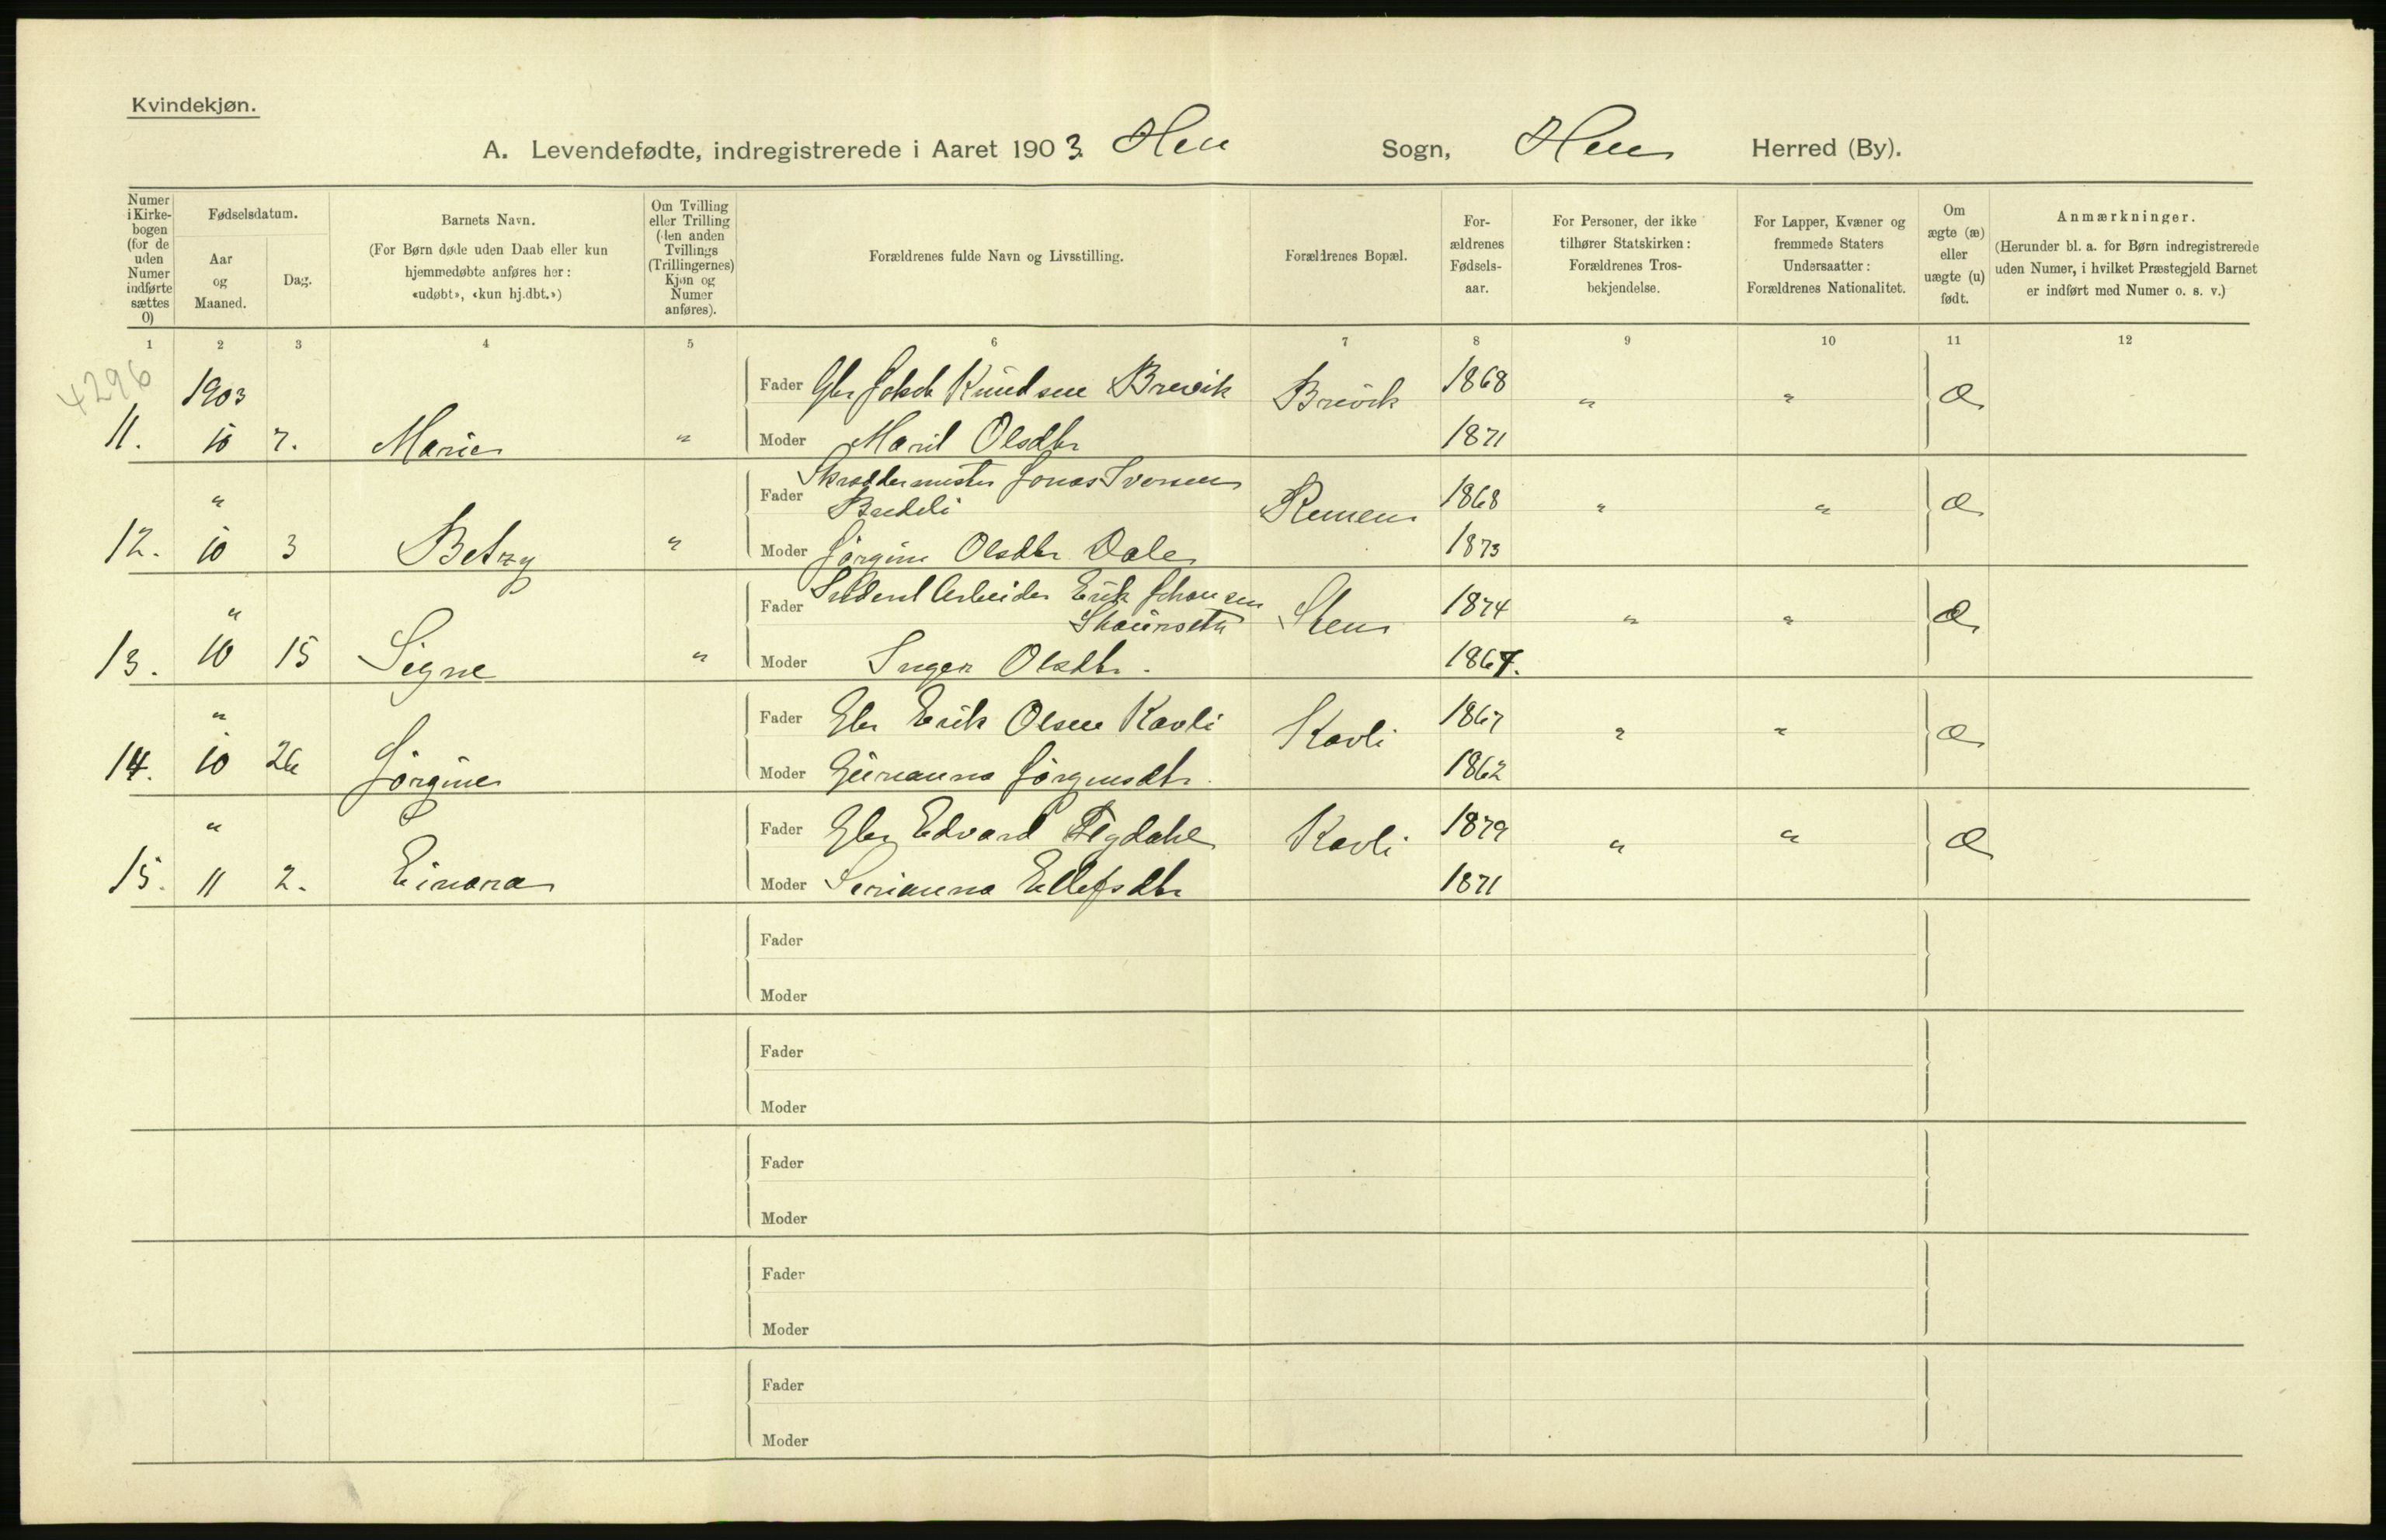 Kvindekjøn.
A. Levendefødte, indregistrerede i Aaret 1903. Hen Sogn, Hen Herred (By).
Numer i Kirke-bogen (for de uden Numer indførte sættes 0)
Fødselsdatum.
Aar og Maaned.
Dag.
Barnets Navn.
(For Børn døde uden Daab eller kun
hjemmedøbte anføres her:
«udøbt», «kun hj.dbt.»)
Om Tvilling
eller Trilling
(den anden
Tvillings
(Trillingernes)
Kjøn og
Numer
anføres).
Forældrenes fulde Navn og Livsstilling.
Forældrenes Bopæl.
For-
ældrenes
Fødsels-
aar.
For Personer, der ikke
tilhører Statskirken:
Forældrenes Tros-
bekjendelse.
For Lapper, Kvæner og
fremmede Staters
Undersaatter:
Forældrenes Nationalitet.
Om
ægte (æ)
eller
uægte (u)
født.
Anmærkninger.
(Herunder bl. a. for Børn indregistrerede
uden Numer, i hvilket Præstegjeld Barnet
er indført med Numer o. s. v.)
1 2 3 4 5 6 7 8 9 10 11 12
4296
1903 Fader Gbr Knudsen Brevik Brevik 1868 " " æ
11. 10 7. Marie " Moder Marit Olsdtr 1871
" Fader Skræddermester Jonas Iversen
Bredeli Remen 1868 " " æ
12. 10 3 Betzy " Moder Jørgine Olsdtr Dale 1873
" Fader Inderst Arbeider Erik Johansen
Sten 1874 " " æ
13. 10 15 Signe " Moder Inger Olsdtr. 1867.
" Fader Gbr Erik Olsen Kavli Kavli 1867 " " æ
14. 10 26 Jørgine Moder Gurianna Jørgensdtr. 1862
" Fader Gbr Edvard Kavli 1879 " " æ
15. 11 2. Einara Moder Serianna Ellefsdtr 1871
Fader
Moder
Fader
Moder
Fader
Moder
Fader
Moder
Fader
Moder